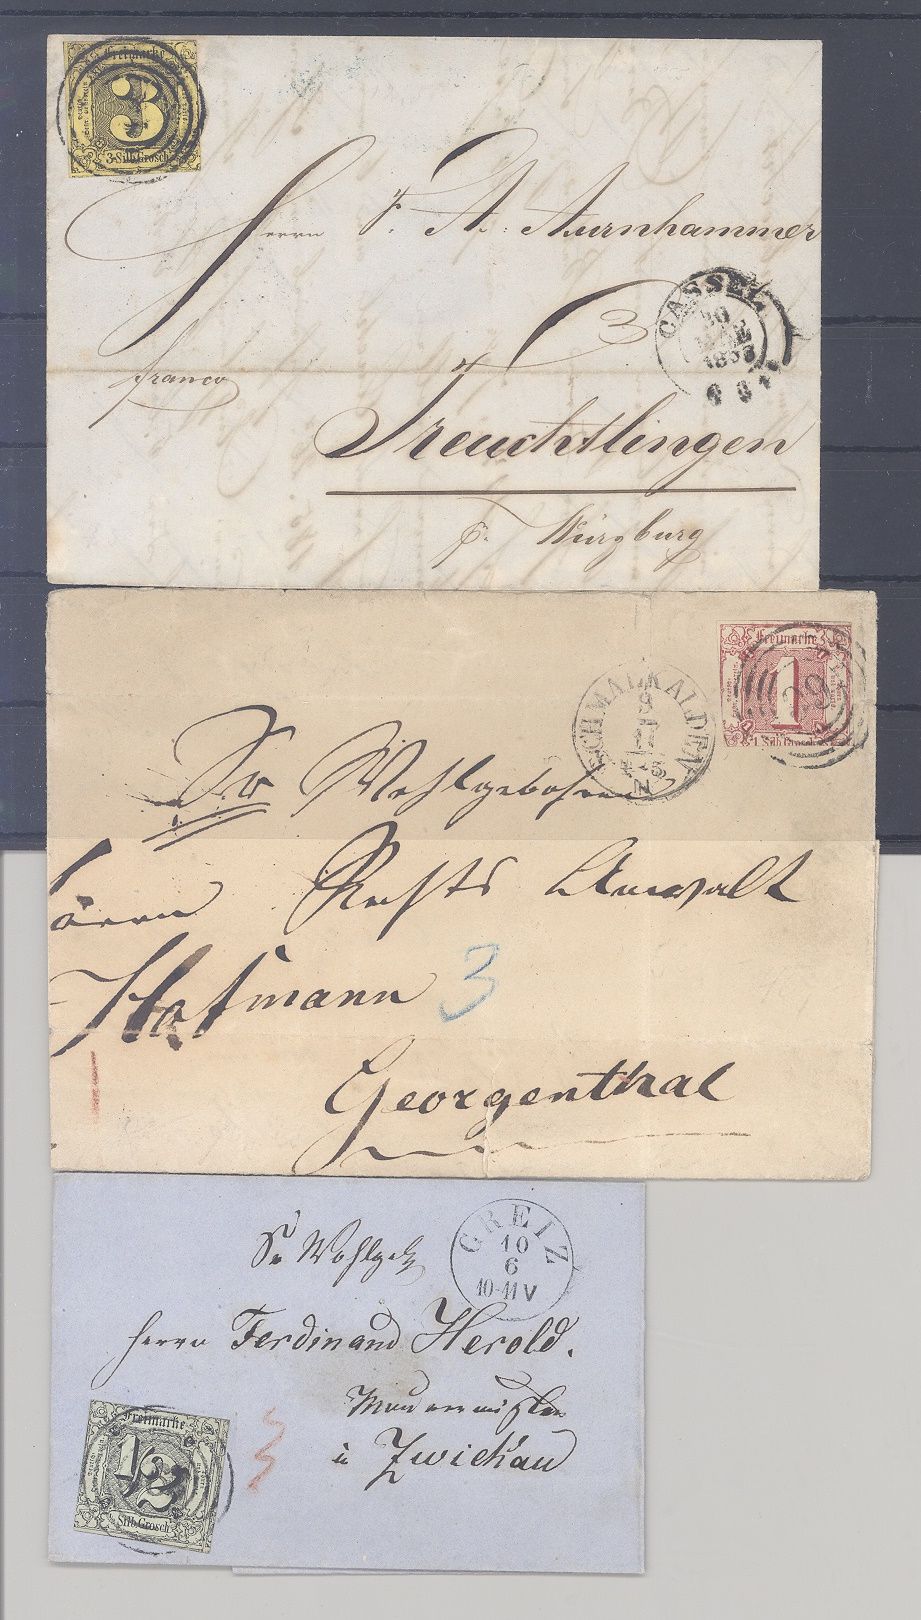 Freimarke
3
3 Silb. Grosch
Herrn F. A. Aurnhammer
3
CASSEL
franco
Treuchtlingen
p. Würzburg
Freimarke
1
1 Silb. Grosch
SCHMALKALDEN
9
11
N
Sr Wohlgeboren
Herrn Rechts Anwalt
Hofmann 3
Georgenthal
GREIZ
10
6
10-11 V
Sr Wohlgeb
Herrn Ferdinand Herold.
Freimarke
1/2
Silb. Grosch
in Zwickau